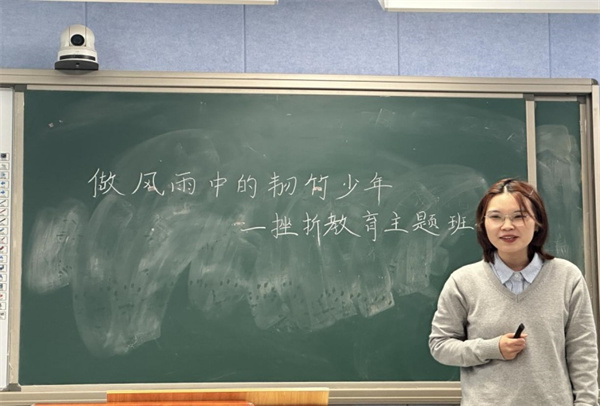 做风雨中的韧竹少年
—挫折教育主题班